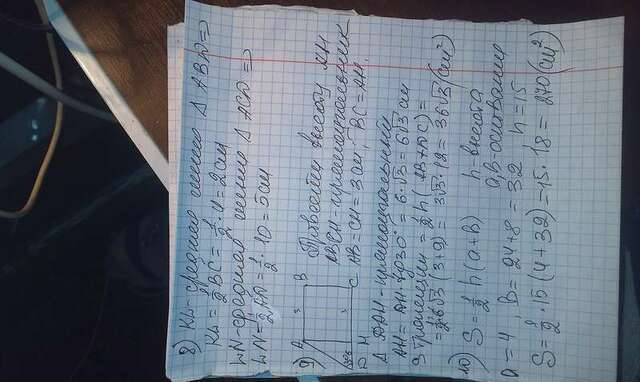 8) KL-средняя линия △ ABD ⇒
KL = 1/2 BC = 1/2 · 4 = 2 см
LN-средняя линия △ ACD ⇒
LN = 1/2 AD = 1/2 · 10 = 5 см
9) A B Провести высоту
ABCH-прямоугольник
D H C AB = CH = 3 см, BC = AH.
△ DAH-прямоугольный
AH = · tg 30° = 6 · √3 = 6√3 см
S трапеции = 1/2 h (AB + DC) =
= 1/2 6√3 (3+9) = 3√3 · 12 = 36√3 (см²)
10) S = 1/2 h (a+b) h высота
a, b-основания
a = 4, b = 24+8 = 32 h = 15
S = 1/2 · 15 (4 + 32) = 15 · 18 = 270 (см²)